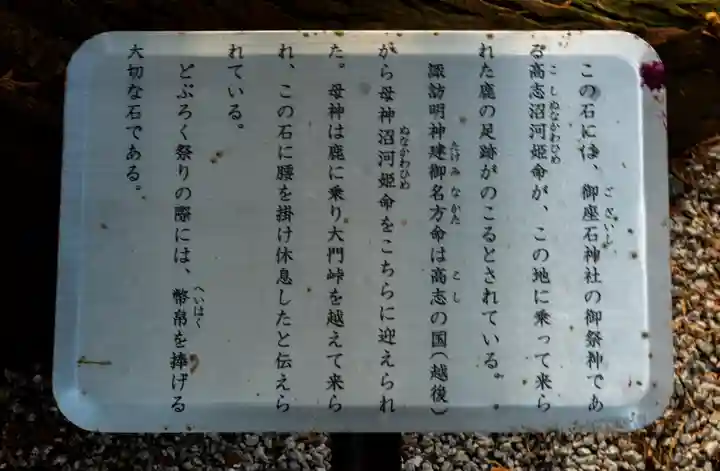 この石には、御座石神社の御祭神であ
る高志沼河姫命が、この地に乗って来ら
れた鹿の足跡がのこるとされている。
諏訪明神建御名方命は高志の国(越後)
から母神沼河姫命をこちらに迎えられ
た。母神は鹿に乗り大門峠を越えて来ら
れ、この石に腰を掛け休息したと伝えら
れている。
どぶろく祭りの際には、幣帛を捧げる
大切な石である。
ございし
こしぬなかわひめ
たけみなかた
こし
ぬなかわひめ
へいはく